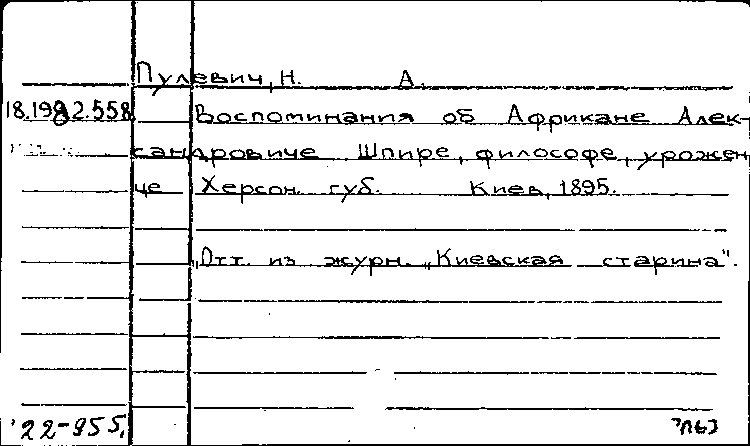 Пулевич, Н. А.
18.1982.558 Воспоминания об Африкане Алек-
сандровиче Шпире, философе, урожен-
це Херсон. губ. Киев, 1895.
„Отт. из журн. „Киевская старина".
22-955